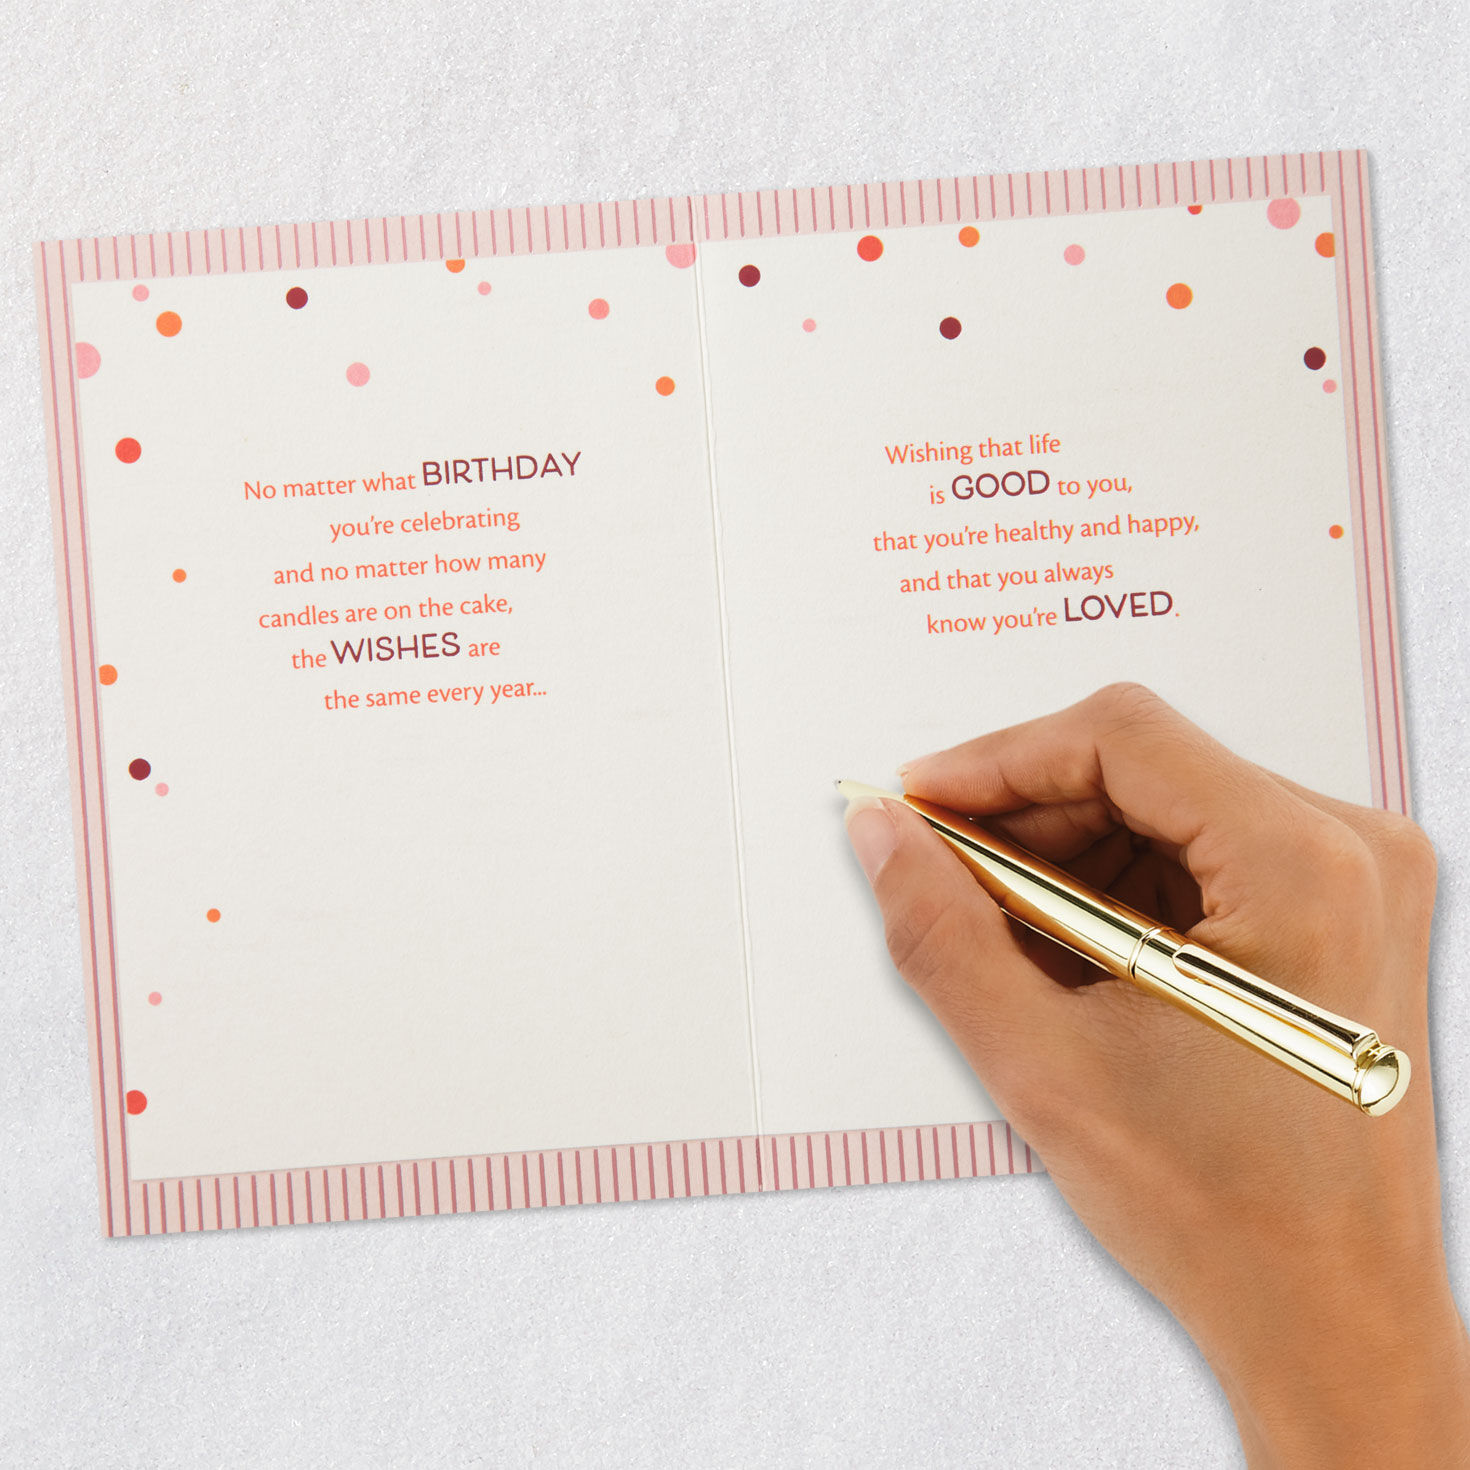 No matter what BIRTHDAY
you're celebrating
and no matter how many
candles are on the cake,
the WISHES are
the same every year...
Wishing that life
is GOOD to you,
that you're healthy and happy,
and that you always
know you're LOVED.